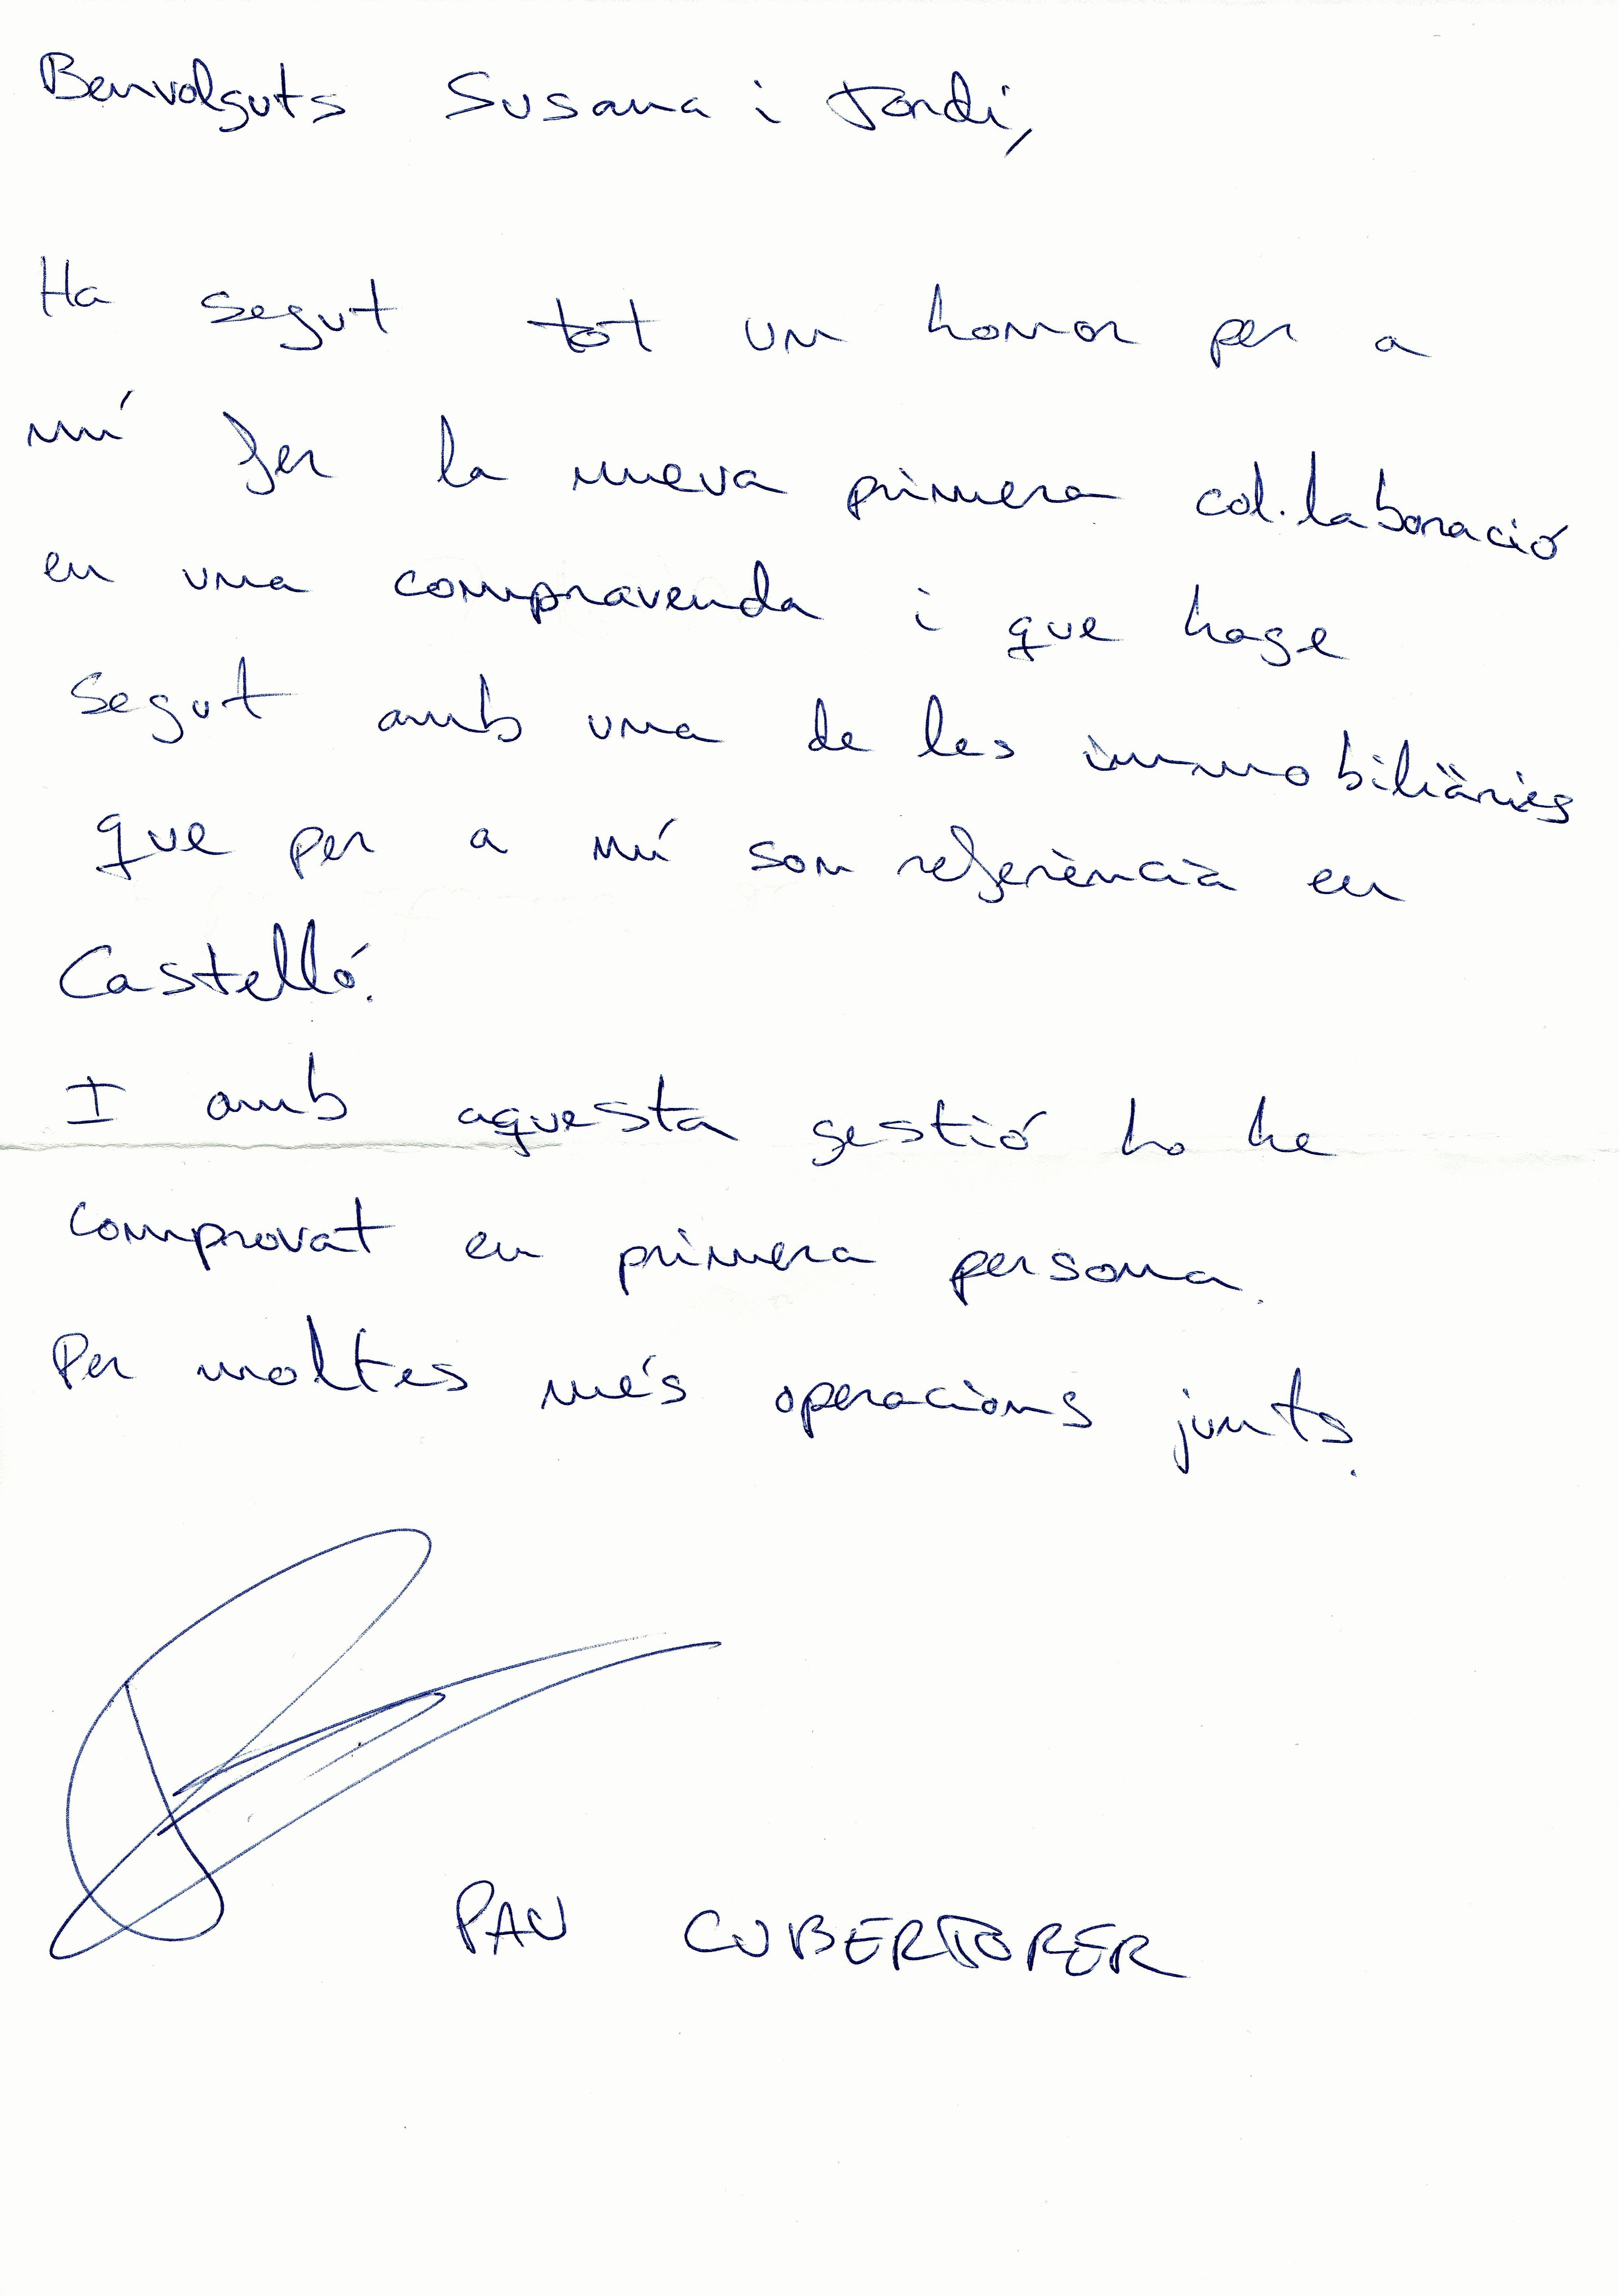 Benvolguts Susana i Jordi,
Ha segut tot un honor per a
mí fer la meva primera col.laboració
en una compravenda i que hage
segut amb una de les immobiliàries
que per a mí son referència en
Castelló.
I amb aquesta gestió ho he
comprovat en primera persona.
Per moltes més operacions junts.
PAU CUBERTORER